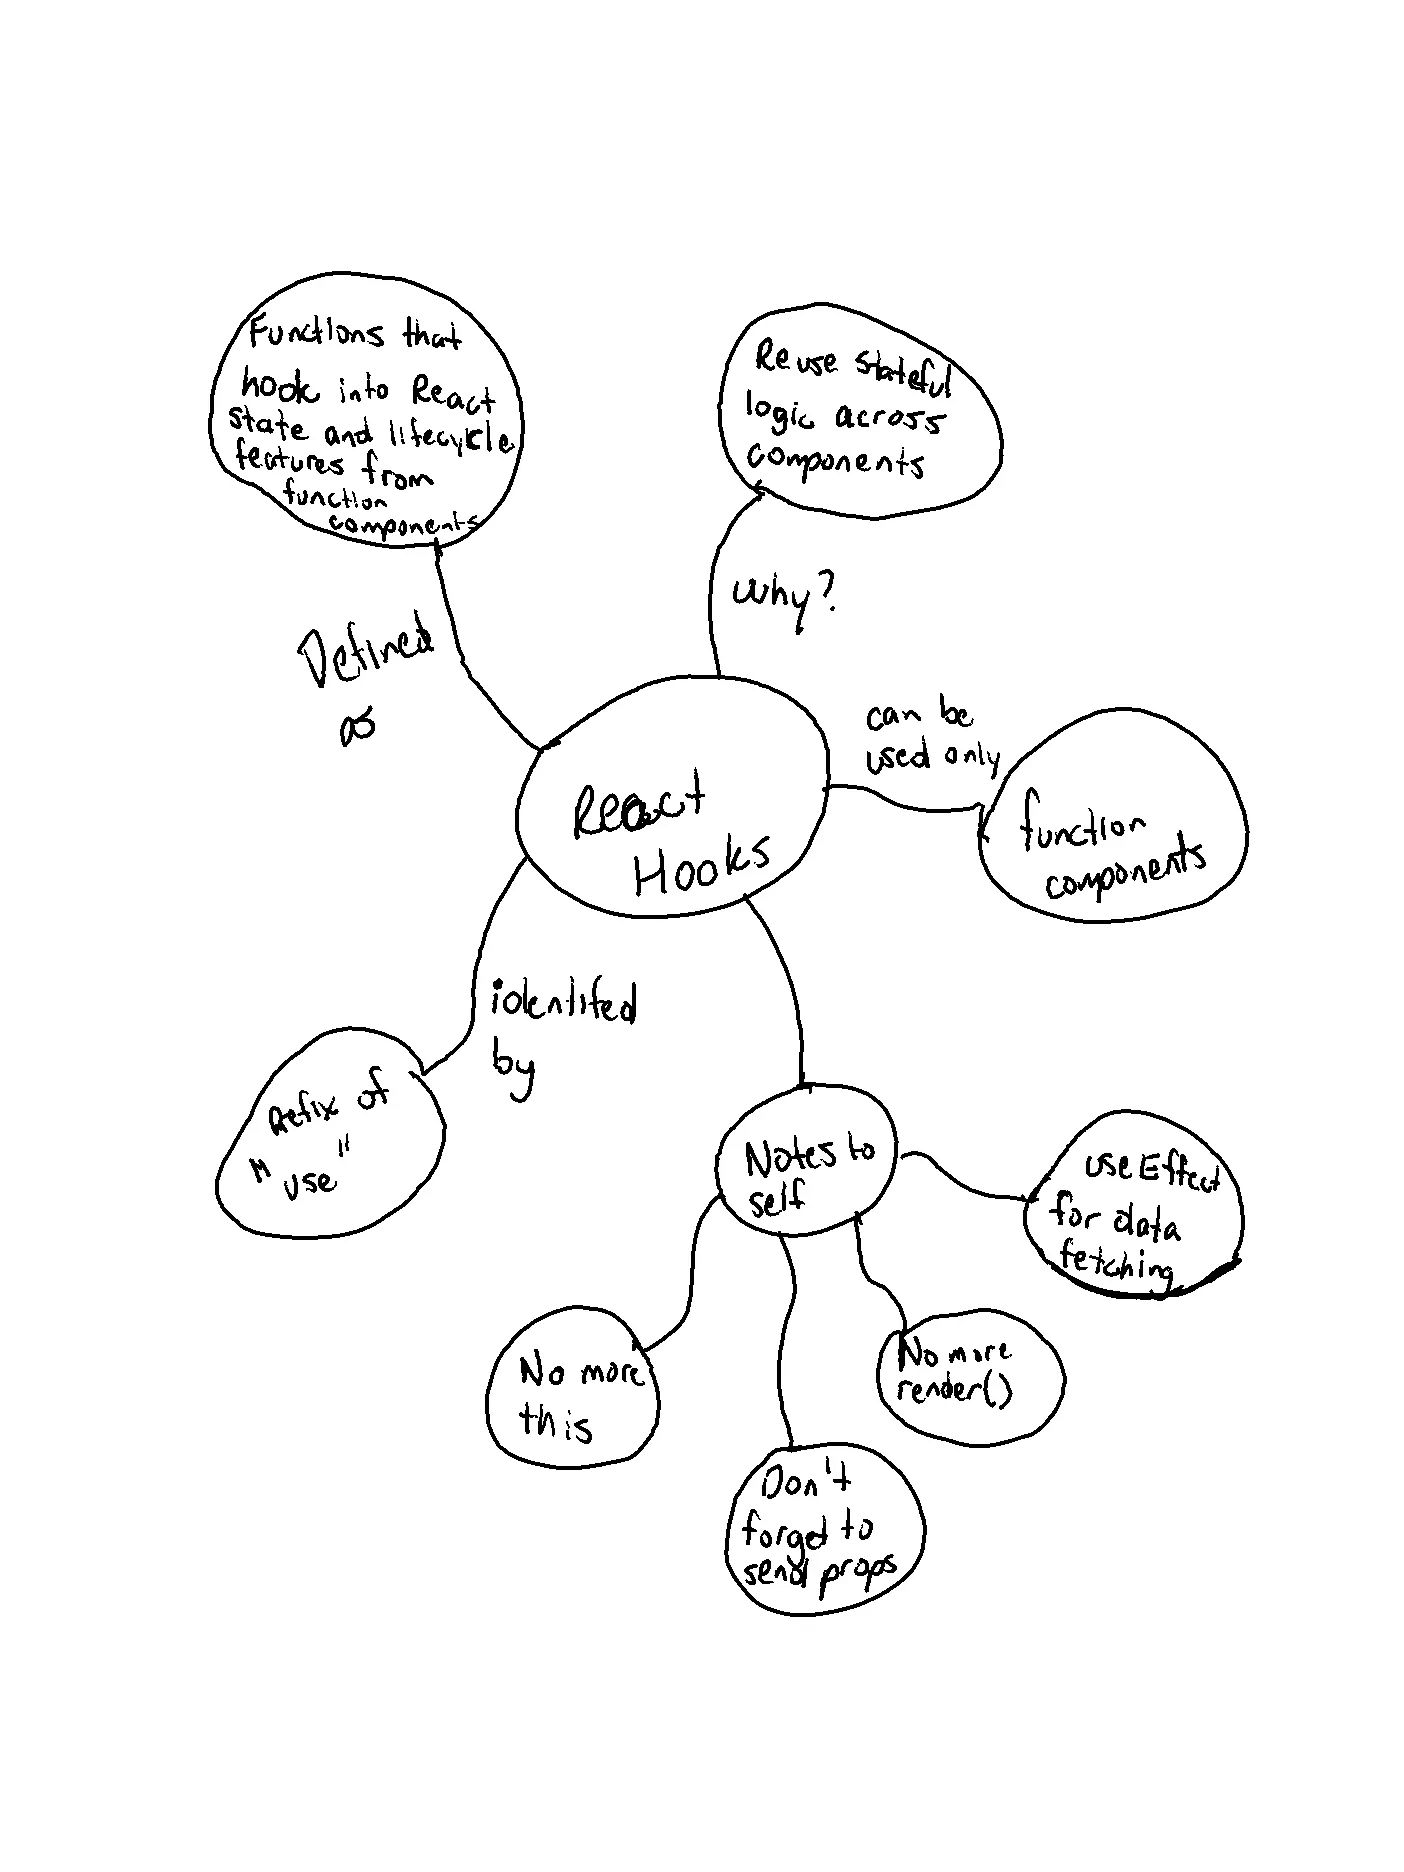 Functions that
hook into React
state and lifecycle
features from
function
components
Reuse stateful
logic across
components
Why?
Defined
as
can be
used only
React
Hooks
function
components
identifed
by
Prefix of
"use"
Notes to
self
useEffect
for data
fetching
No more
this
No more
render()
Don't
forget to
send props